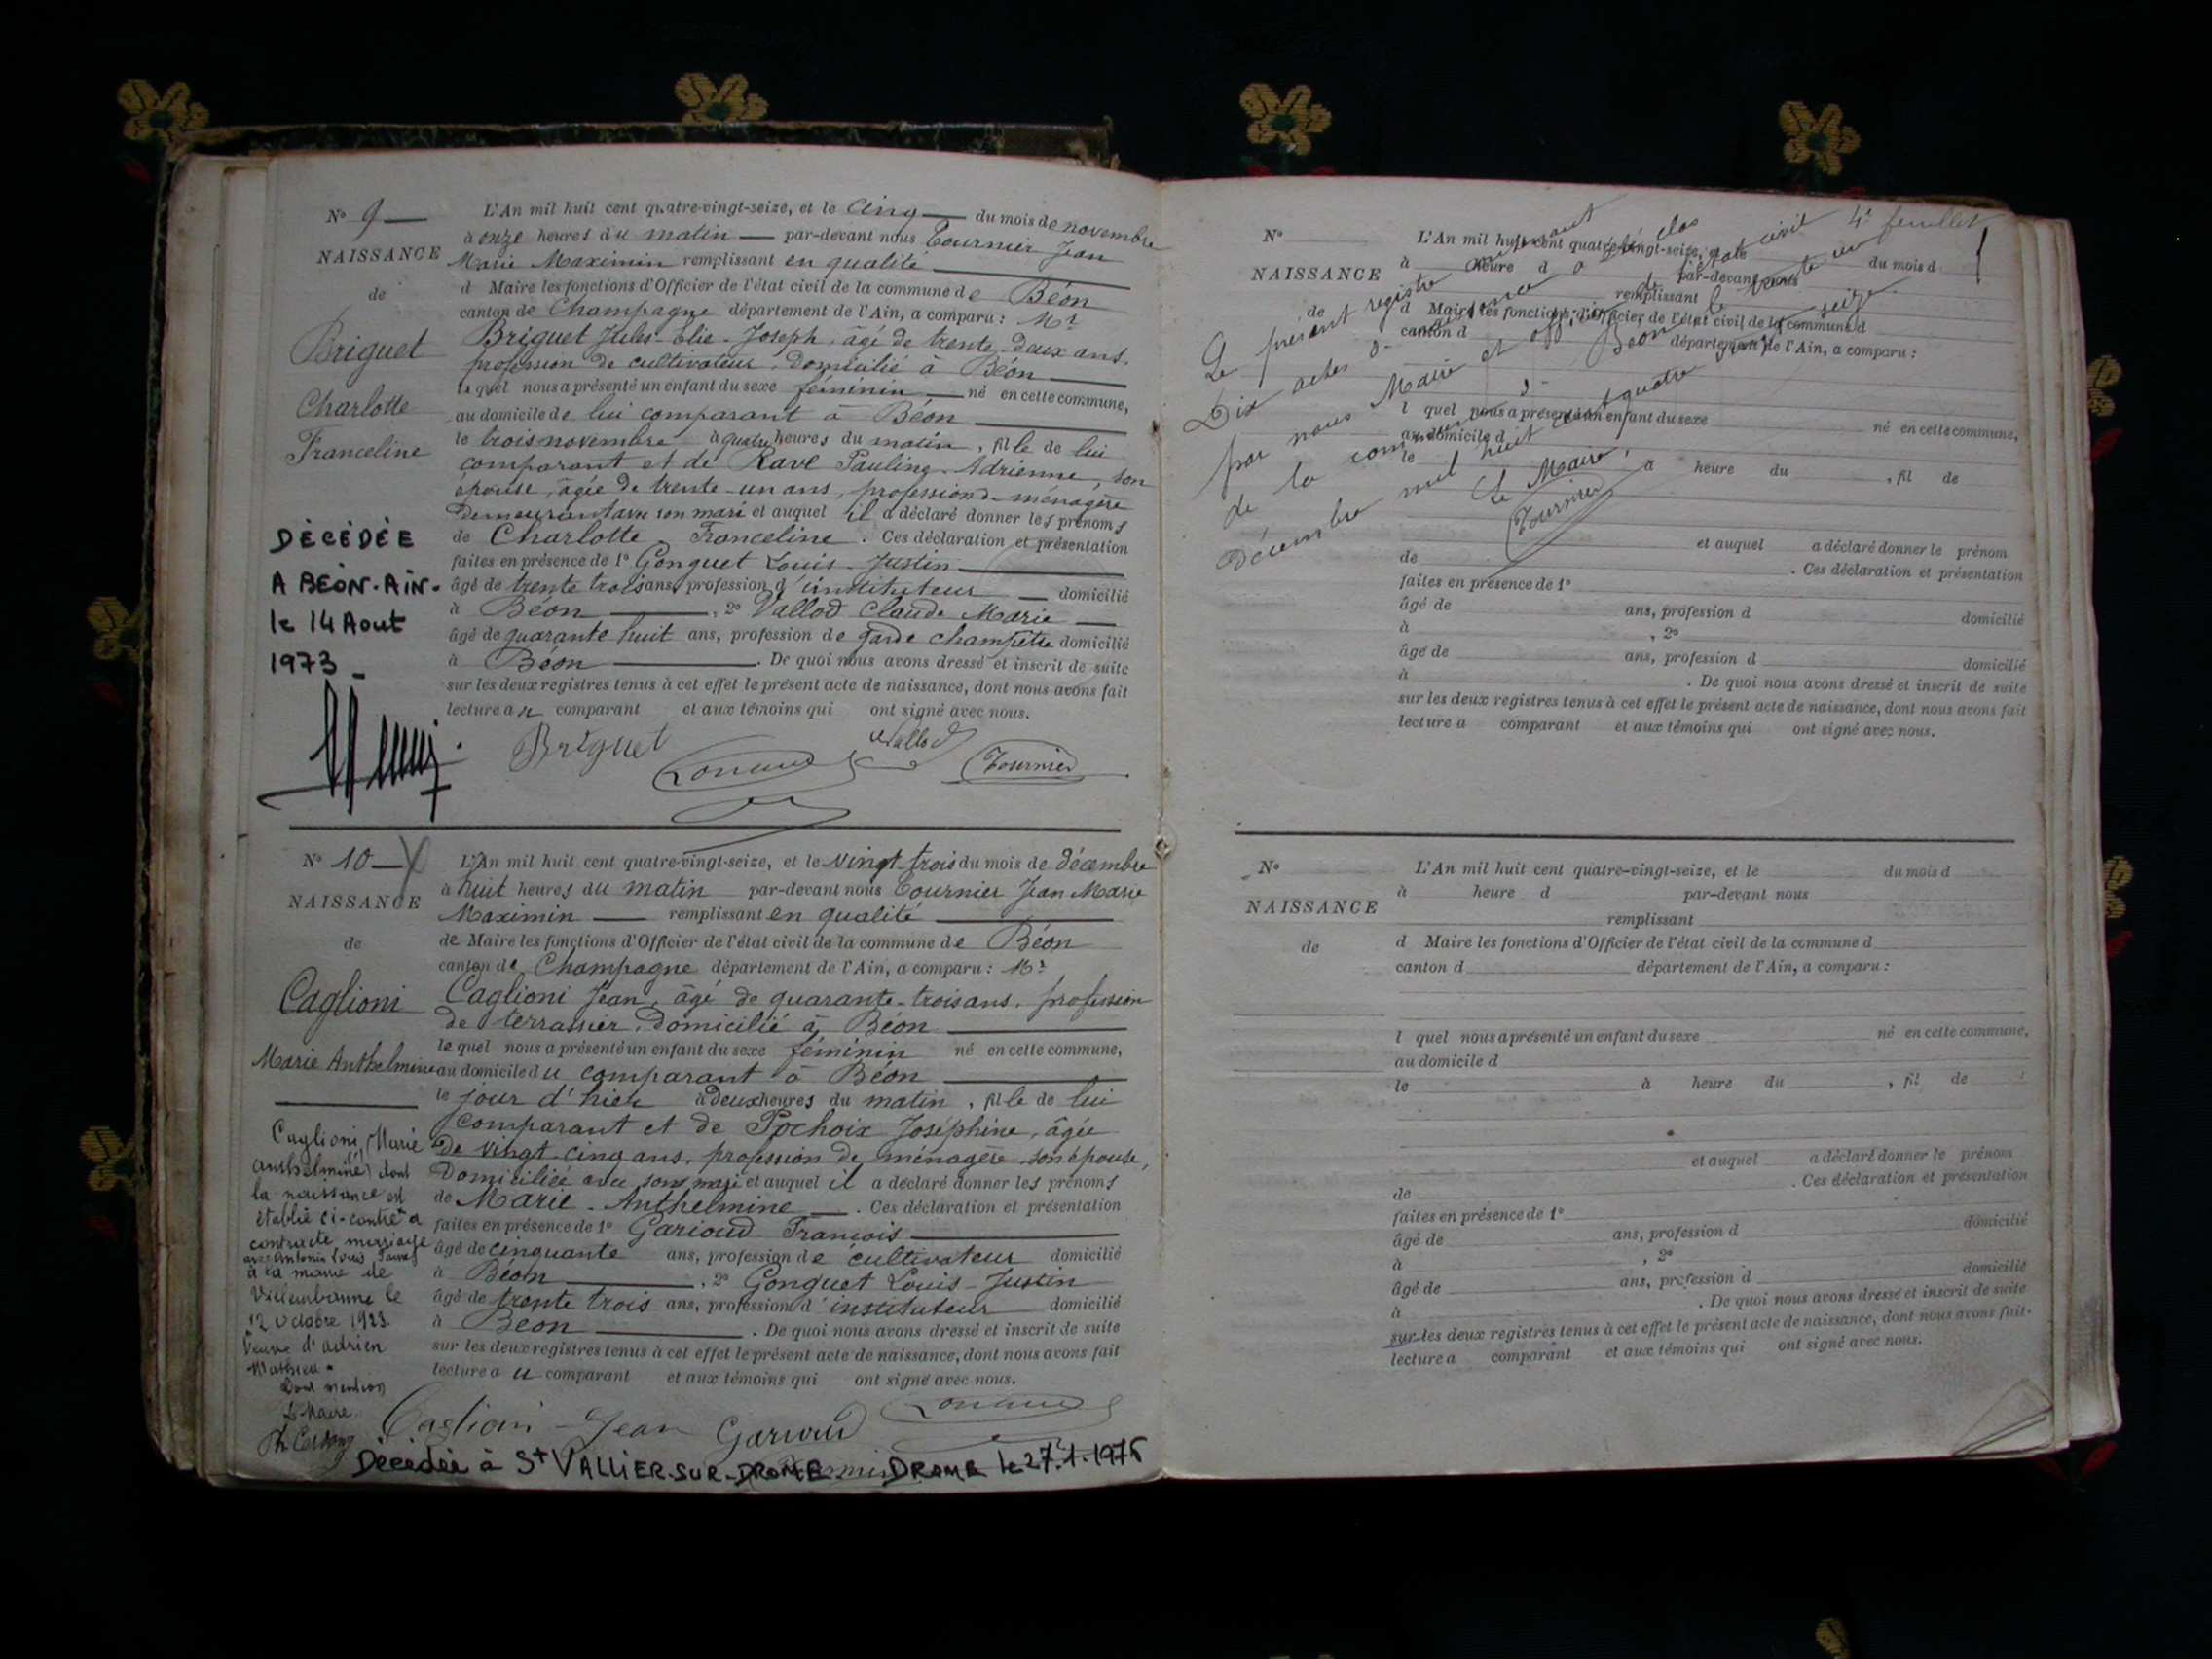 N° 9
NAISSANCE
de
Briguet
Charlotte
Franceline
DÉCÉDÉE
A BÉON.AIN.
le 14 Aout
1973
L'An mil huit cent quatre-vingt-seize, et le cinq du mois de novembre
à onze heures du matin par-devant nous Tournier Jean
Marie Maximin remplissant en qualité
d Maire les fonctions d'Officier de l'état civil de la commune de Béon
canton de Champagne département de l'Ain, a comparu : Mr
Briguet Jules-Elie-Joseph, âgé de trente-deux ans,
profession de cultivateur, domicilié à Béon
lequel nous a présenté un enfant du sexe féminin né en cette commune,
au domicile de lui comparant à Béon
le trois novembre à quatre heures du matin, fille de lui
comparant et de Ravel Pauline Adrienne, son
épouse, âgée de trente-un ans, profession de ménagère
demeurant avec son mari et auquel il a déclaré donner les prénoms
de Charlotte Franceline. Ces déclaration et présentation
faites en présence de 1° Gonguet Louis-Justin
âgé de trente trois ans, profession d'instituteur domicilié
à Béon, 2° Vallod Claude Marie
âgé de quarante huit ans, profession de garde champêtre domicilié
à Béon. De quoi nous avons dressé et inscrit de suite
sur les deux registres tenus à cet effet le présent acte de naissance, dont nous avons fait
lecture au comparant et aux témoins qui ont signé avec nous.
Briguet Vallod Tournier
N° 10
NAISSANCE
de
Caglioni
Marie Anthelmine
Caglioni (Marie
Anthelmine) dont
la naissance est
établie ci-contre a
contracté mariage
avec Antonin Louis
à la mairie de
Villeurbanne le
12 octobre 1923.
Veuve d'Adrien
Mathieu.
Dont mention
Le Maire
L'An mil huit cent quatre-vingt-seize, et le vingt-trois du mois de décembre
à huit heures du matin par-devant nous Tournier Jean Marie
Maximin remplissant en qualité
de Maire les fonctions d'Officier de l'état civil de la commune de Béon
canton de Champagne département de l'Ain, a comparu : Mr
Caglioni Jean, âgé de quarante-trois ans, profession
de terrassier, domicilié à Béon
lequel nous a présenté un enfant du sexe féminin né en cette commune,
au domicile du comparant à Béon
le jour d'hier à deux heures du matin, fille de lui
comparant et de Pochoix Joséphine, âgée
de vingt-cinq ans, profession de ménagère, son épouse,
domiciliée avec son mari et auquel il a déclaré donner les prénoms
de Marie-Anthelmine. Ces déclaration et présentation
faites en présence de 1° Garioud François
âgé de cinquante ans, profession de cultivateur domicilié
à Béon, 2° Gonguet Louis-Justin
âgé de trente trois ans, profession d'instituteur domicilié
à Béon. De quoi nous avons dressé et inscrit de suite
sur les deux registres tenus à cet effet le présent acte de naissance, dont nous avons fait
lecture au comparant et aux témoins qui ont signé avec nous.
Caglioni Jean Garioud
Décédée à St VALLIER-SUR-DROME DROME le 27.1.1976
4e feuillet
Le présent registre
Dix actes de naissance a été clos
par nous Maire et officier de l'état civil
de la commune de Béon le trente un
Décembre mil huit cent quatre vingt seize.
Le Maire,
Tournier
N°
NAISSANCE
de
L'An mil huit cent quatre-vingt-seize, et le du mois d
à heure d par-devant nous
remplissant
d Maire les fonctions d'Officier de l'état civil de la commune d
canton d département de l'Ain, a comparu :
l quel nous a présenté un enfant du sexe né en cette commune,
au domicile d
le à heure du , fil de
et auquel a déclaré donner le prénom
de . Ces déclaration et présentation
faites en présence de 1°
âgé de ans, profession d domicilié
à , 2°
âgé de ans, profession d domicilié
à . De quoi nous avons dressé et inscrit de suite
sur les deux registres tenus à cet effet le présent acte de naissance, dont nous avons fait
lecture a comparant et aux témoins qui ont signé avec nous.
N°
NAISSANCE
de
L'An mil huit cent quatre-vingt-seize, et le du mois d
à heure d par-devant nous
remplissant
d Maire les fonctions d'Officier de l'état civil de la commune d
canton d département de l'Ain, a comparu :
l quel nous a présenté un enfant du sexe né en cette commune,
au domicile d
le à heure du , fil de
et auquel a déclaré donner le prénom
de . Ces déclaration et présentation
faites en présence de 1°
âgé de ans, profession d domicilié
à , 2°
âgé de ans, profession d domicilié
à . De quoi nous avons dressé et inscrit de suite
sur les deux registres tenus à cet effet le présent acte de naissance, dont nous avons fait
lecture a comparant et aux témoins qui ont signé avec nous.